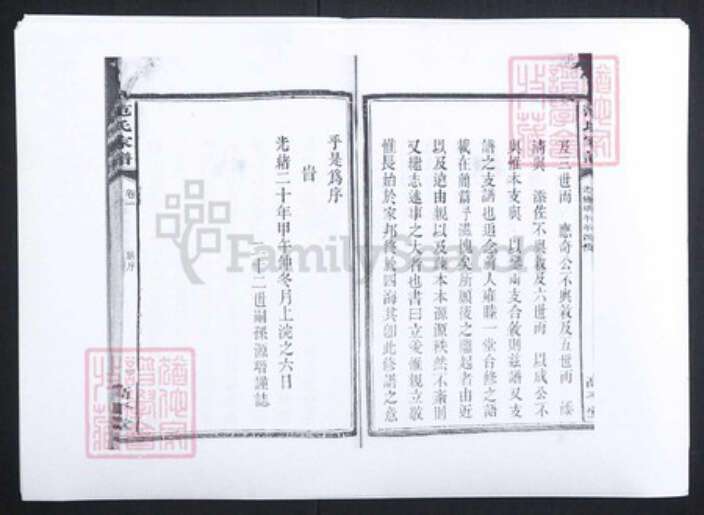 及三世而 應奇公不與敘及五世而 添
濤與 添佐不與敘及六世而 以成公不
與惟本支與 以 兩支合敘則茲譜又支
譜之支譜也追念前人雍睦一堂合修之語
載在簡篇予滋愧矣所願後之繼起者由近
以及遠由親以及疎本本源源秩然不紊則
又繼志述事之大者也書曰立愛惟親立敬
惟長始於家邦終於四海其即此修譜之意
乎是為序
旹
光緒二十年甲午仲冬月上浣之六日
三十二世嗣孫源 謹誌
范氏家譜
卷一
FamilySearch